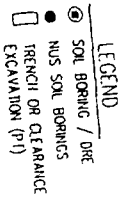 LEGEND
SOIL BORING / DRE
NUS SOIL BORINGS
TRENCH OR CLEARANCE
EXCAVATION (PIT)